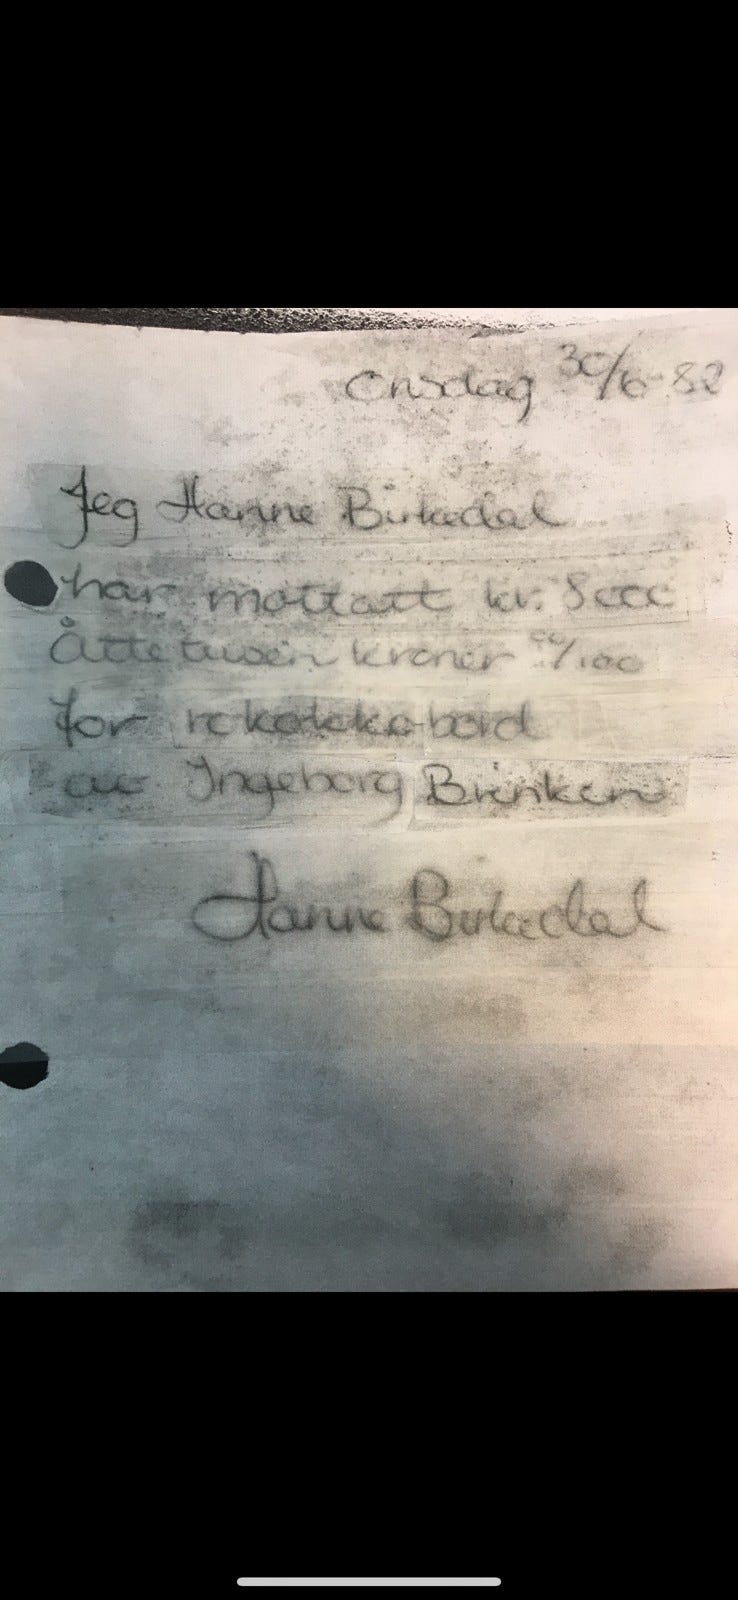 Onsdag 30/6-82
Jeg Hanne Birkedal
har mottatt kr. 8000
Åttetusen kroner 00/100
for rokokko-bord
av Ingeborg Brinken
Hanne Birkedal